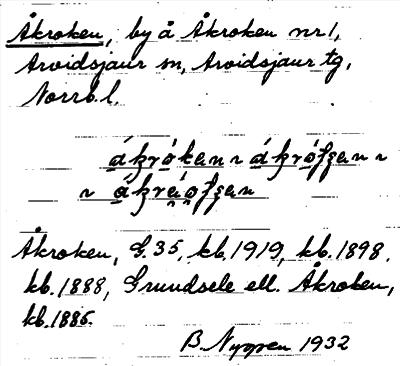 Åkroken, by å Åkroken nr 1,
Arvidsjaur sn, Arvidsjaur tg,
Norrb. l.
Åkroken, G. 35, kb. 1919, kb. 1898,
kb. 1888, Grundsele ell. Åkroken,
kb. 1886.
B. Nygren 1932